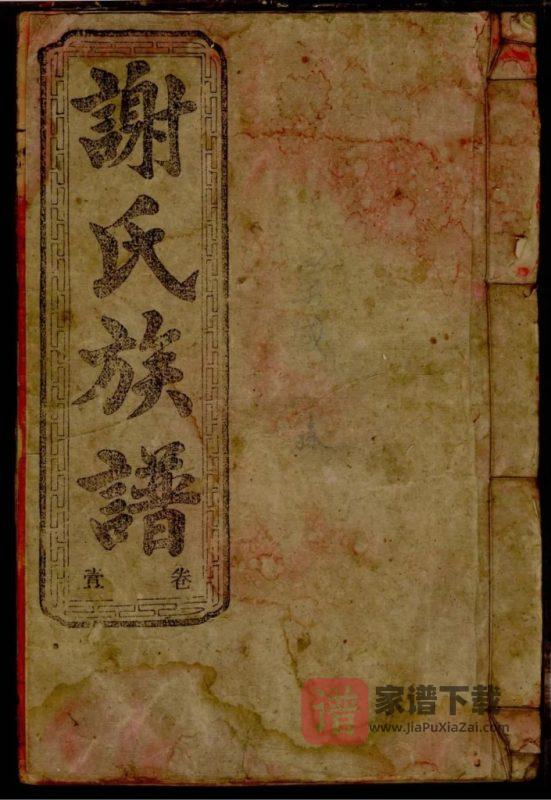 謝氏族譜
卷壹
谱
家谱下载
www.JiaPuXiaZai.com